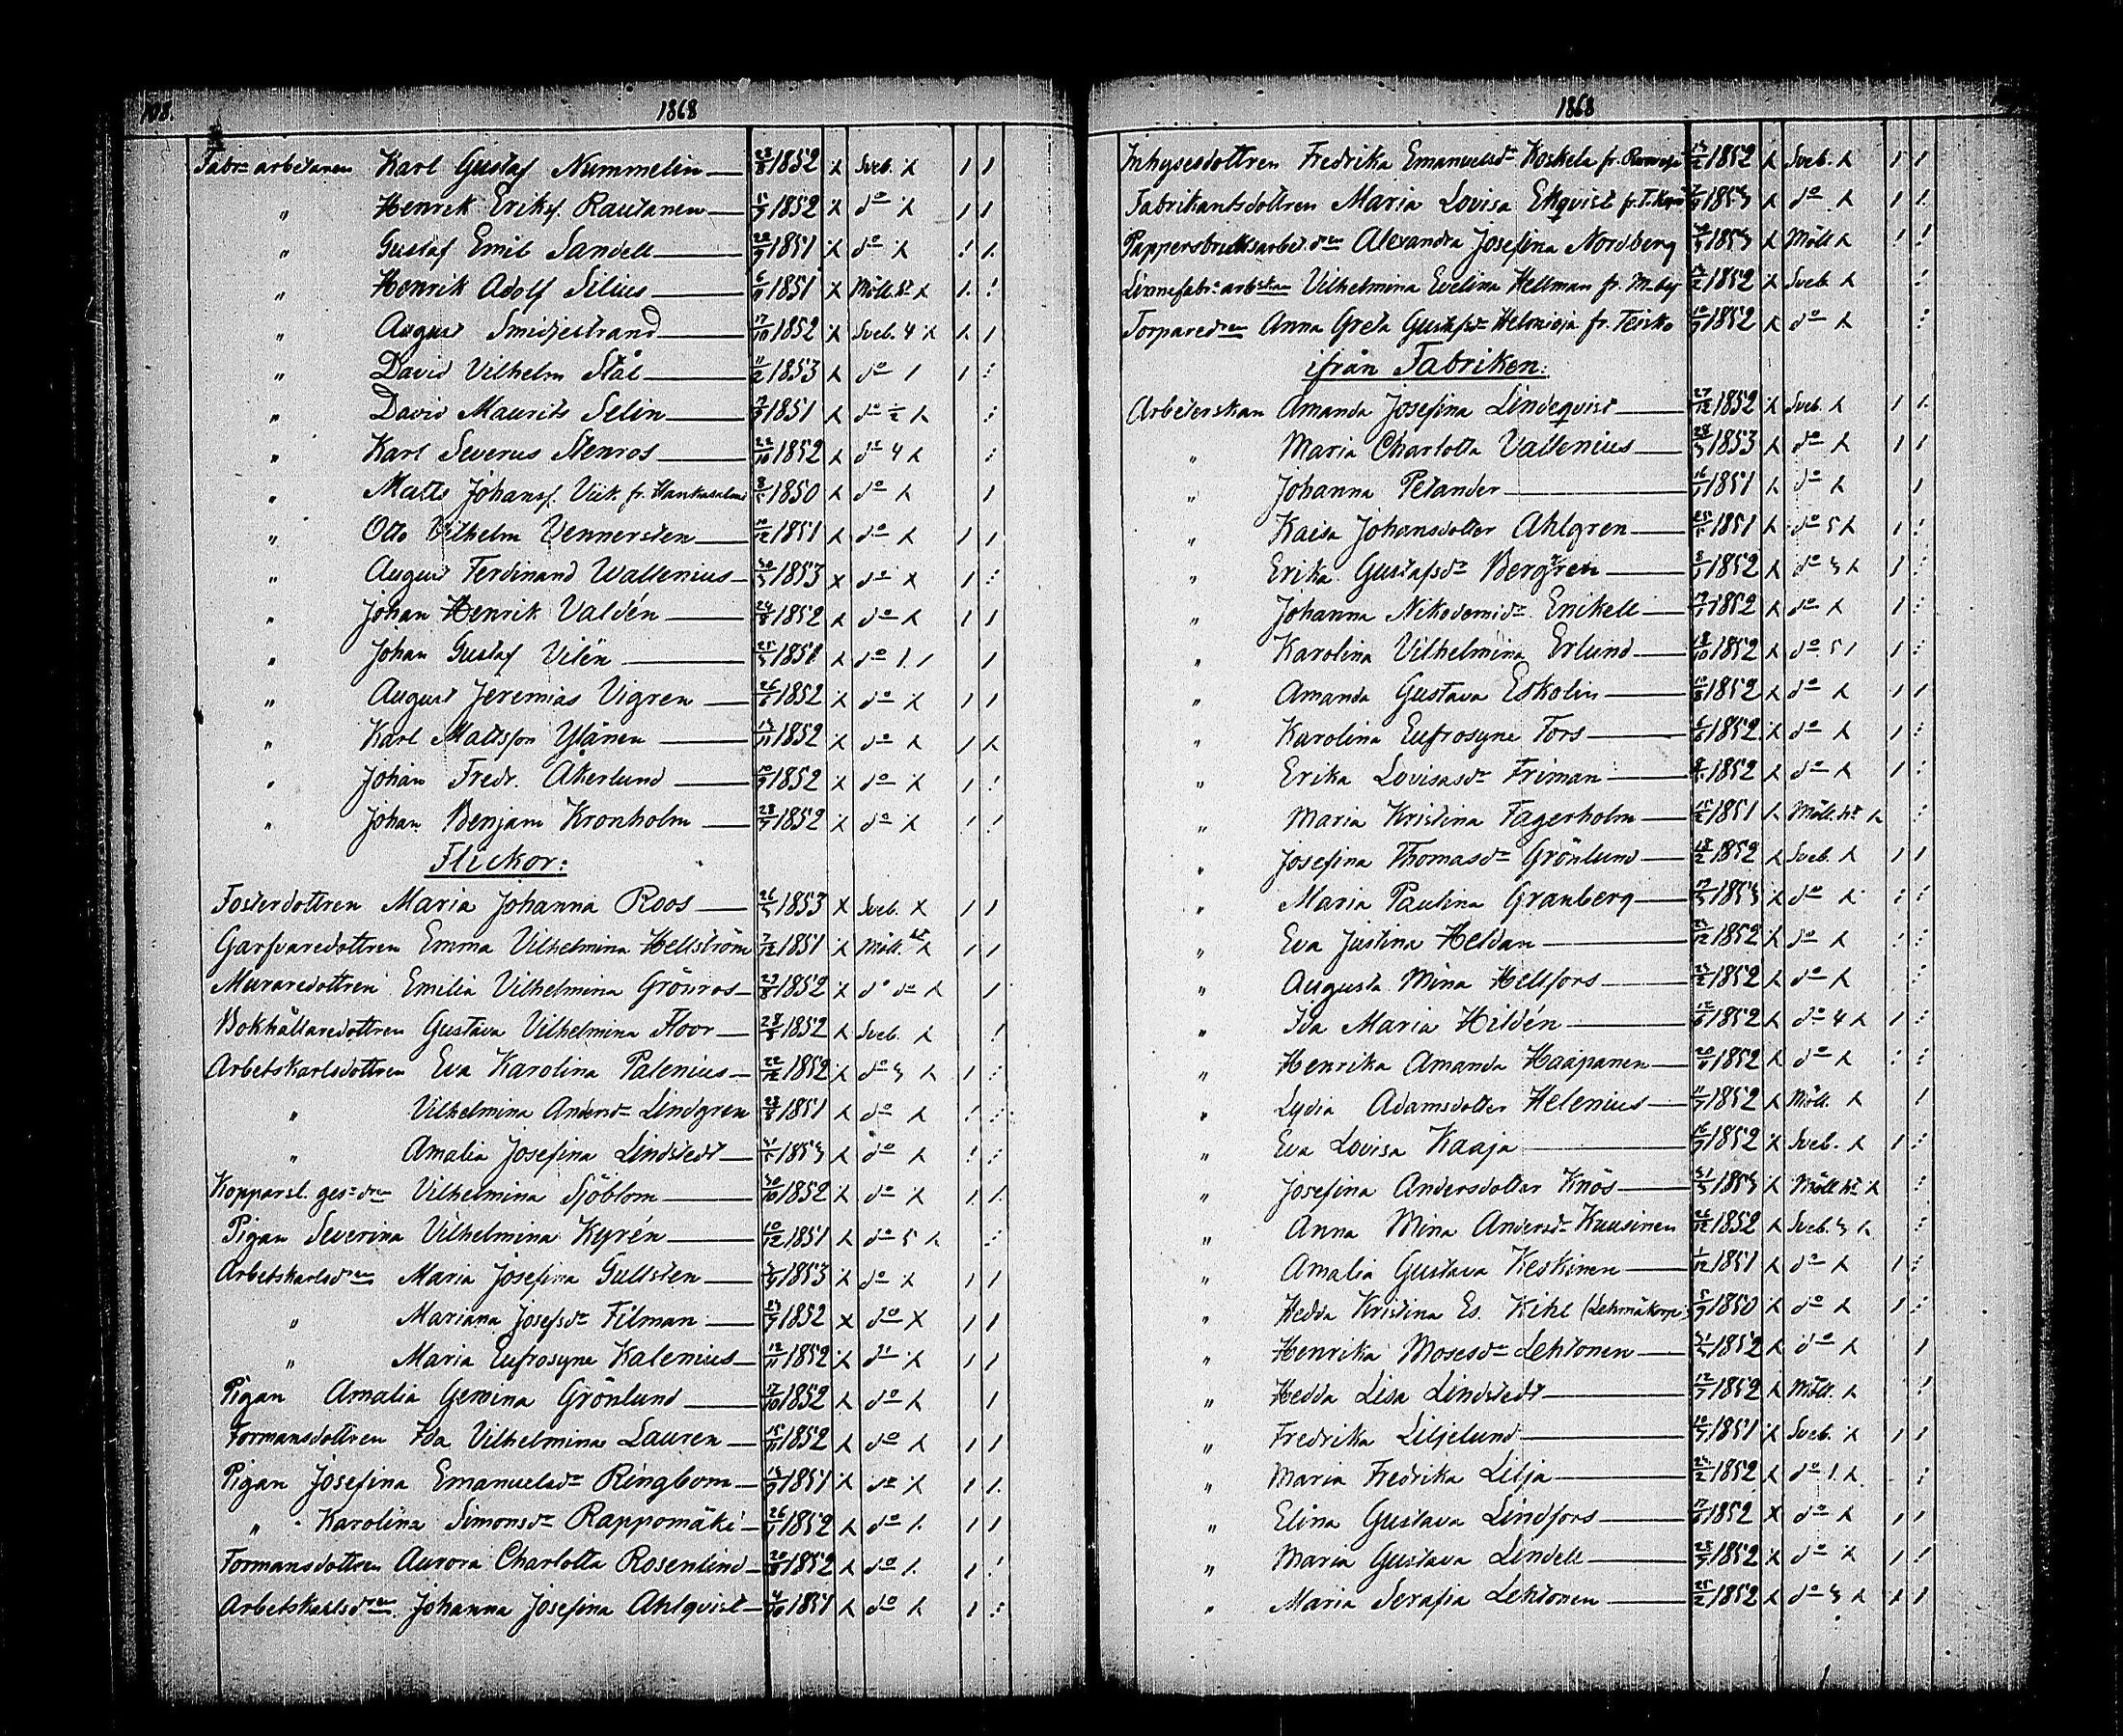 108. 1868
Fabr: arbetaren Karl Gustaf Nummelin 23/8 1852 Sveb.
" Henrik Eriks. Rautanen 1852 do
" Gustaf Emil Sandell 1851 do
" Henrik Adolf Silius 1851 Möll. ht
" August Smidjestrand 17/10 1852 Sveb. 4
" David Vilhelm Stål 11/2 1853 do
" David Maurits Selin 1851 do
" Karl Severus Stenros 22/10 1852 do 4
" Matts Johans. Viik fr. Hankasalmi 1850 do
" Otto Vilhelm Vennersten 10/12 1851 do
" August Ferdinand Wallenius 30/3 1853 do
" Johan Henrik Valdén 24/8 1852 do
" Johan Gustaf Vilén 1851 do
" August Jeremias Vigren 1852 do
" Karl Mattsson Ylänen 1852 do
" Johan Fredr. Åkerlund 1852 do
" Johan Benjam Kronholm 1852 do
Flickor:
Fosterdottren Maria Johanna Roos 26/3 1853 Sveb.
Garfvaredottren Emma Vilhelmina Hellström 7/12 1851 Möll. ht
Muraredottren Emilia Vilhelmina Grönros 1852 do do
Bokhållaredottren Gustava Vilhelmina Floor 1852 Sveb.
Arbetskarlsdottren Eva Karolina Palenius 22/12 1852 do 3
" Vilhelmina Andersdr Lindgren 23/8 1851 do
" Amalia Josefina Lindstedt 1853 do
Kopparsl. ges: dren Vilhelmina Sjöblom 30/10 1852 do
Pigan Severina Vilhelmina Kyrén 10/12 1851 do 5
Arbetskarlsdren Maria Josefina Gullsten 1853 do
" Mariana Josefsdr Filman 1852 do
" Maria Eufrosyne Kalenius 12/11 1852 do
Pigan Amalia Gemina Grönlund 17/10 1852 do
Formansdottren Ida Vilhelmina Lauren 1852 do
Pigan Josefina Emanuelsdr Ringbom 1851 do
" Karolina Simonsdr Rappomäki 1852 do
Formansdottren Aurora Charlotta Rosenlind 20/8 1852 do
Arbetskarlsdren Johanna Josefina Ahlqvist 4/10 1851 do
1868
Inhysesdottren Fredrika Emanuelsdr Koskela fr. 1852 Sveb.
Fabrikantsdottren Maria Lovisa Ekqvist fr. 1853 do
Pappersbruksarbet. dren Alexandra Josefina Nordberg 1853 Möll
Linnefabr: arbskan Vilhelmina Evelina Hellman fr. M-by 1852 Sveb
Torparedren Anna Greta Gustafsdr Helmioja fr. Teisko 1852 do
ifrån Fabriken:
Arbeterskan Amanda Josefina Lindeqvist 27/12 1852 Sveb.
" Maria Charlotta Vallenius 28/3 1853 do
" Johanna Petander 1851 do
" Kaisa Johansdotter Ahlgren 1851 do 5
" Erika Gustafsdr Berggren 1852 do 3
" Johanna Nikodemidr Enikell 1852 do
" Karolina Vilhelmina Erlund 18/10 1852 do 5
" Amanda Gustava Eskolin 10/8 1852 do
" Karolina Eufrosyne Fors 1852 do
" Erika Lovisasdr Friman 1852 do
" Maria Kristina Fagerholm 1851 Möll. ht
" Josefina Thomasdr Grönlund 18/2 1852 Sveb.
" Maria Paulina Granberg 1853 do
" Eva Justina Heldan 1852 do
" Augusta Mina Hellfors 1852 do
" Ida Maria Hildén 1852 do 4
" Henrika Amanda Haapanen 1852 do
" Lydia Adamsdotter Helenius 1852 Möll.
" Eva Lovisa Kaaja 1852 Sveb.
" Josefina Andersdotter Knös 31/3 1853 Möll ht
" Anna Mina Andersdr Kuusinen 26/12 1852 Sveb. 3
" Amalia Gustava Keskinen 1/12 1851 do
" Hedda Kristina Es. Kihl (Lehmäkorpi) 1850 do
" Henrika Mosesdr Lehtonen 31/3 1852 do
" Hedda Lisa Lindstedt 1852 Möll.
" Fredrika Liljelund 1851 Sveb.
" Maria Fredrika Lilja 1852 do 1.
" Elina Gustava Lindfors 1852 do
" Maria Gustava Lindell 1852 do
" Maria Serafia Lehtonen 25/2 1852 do 3